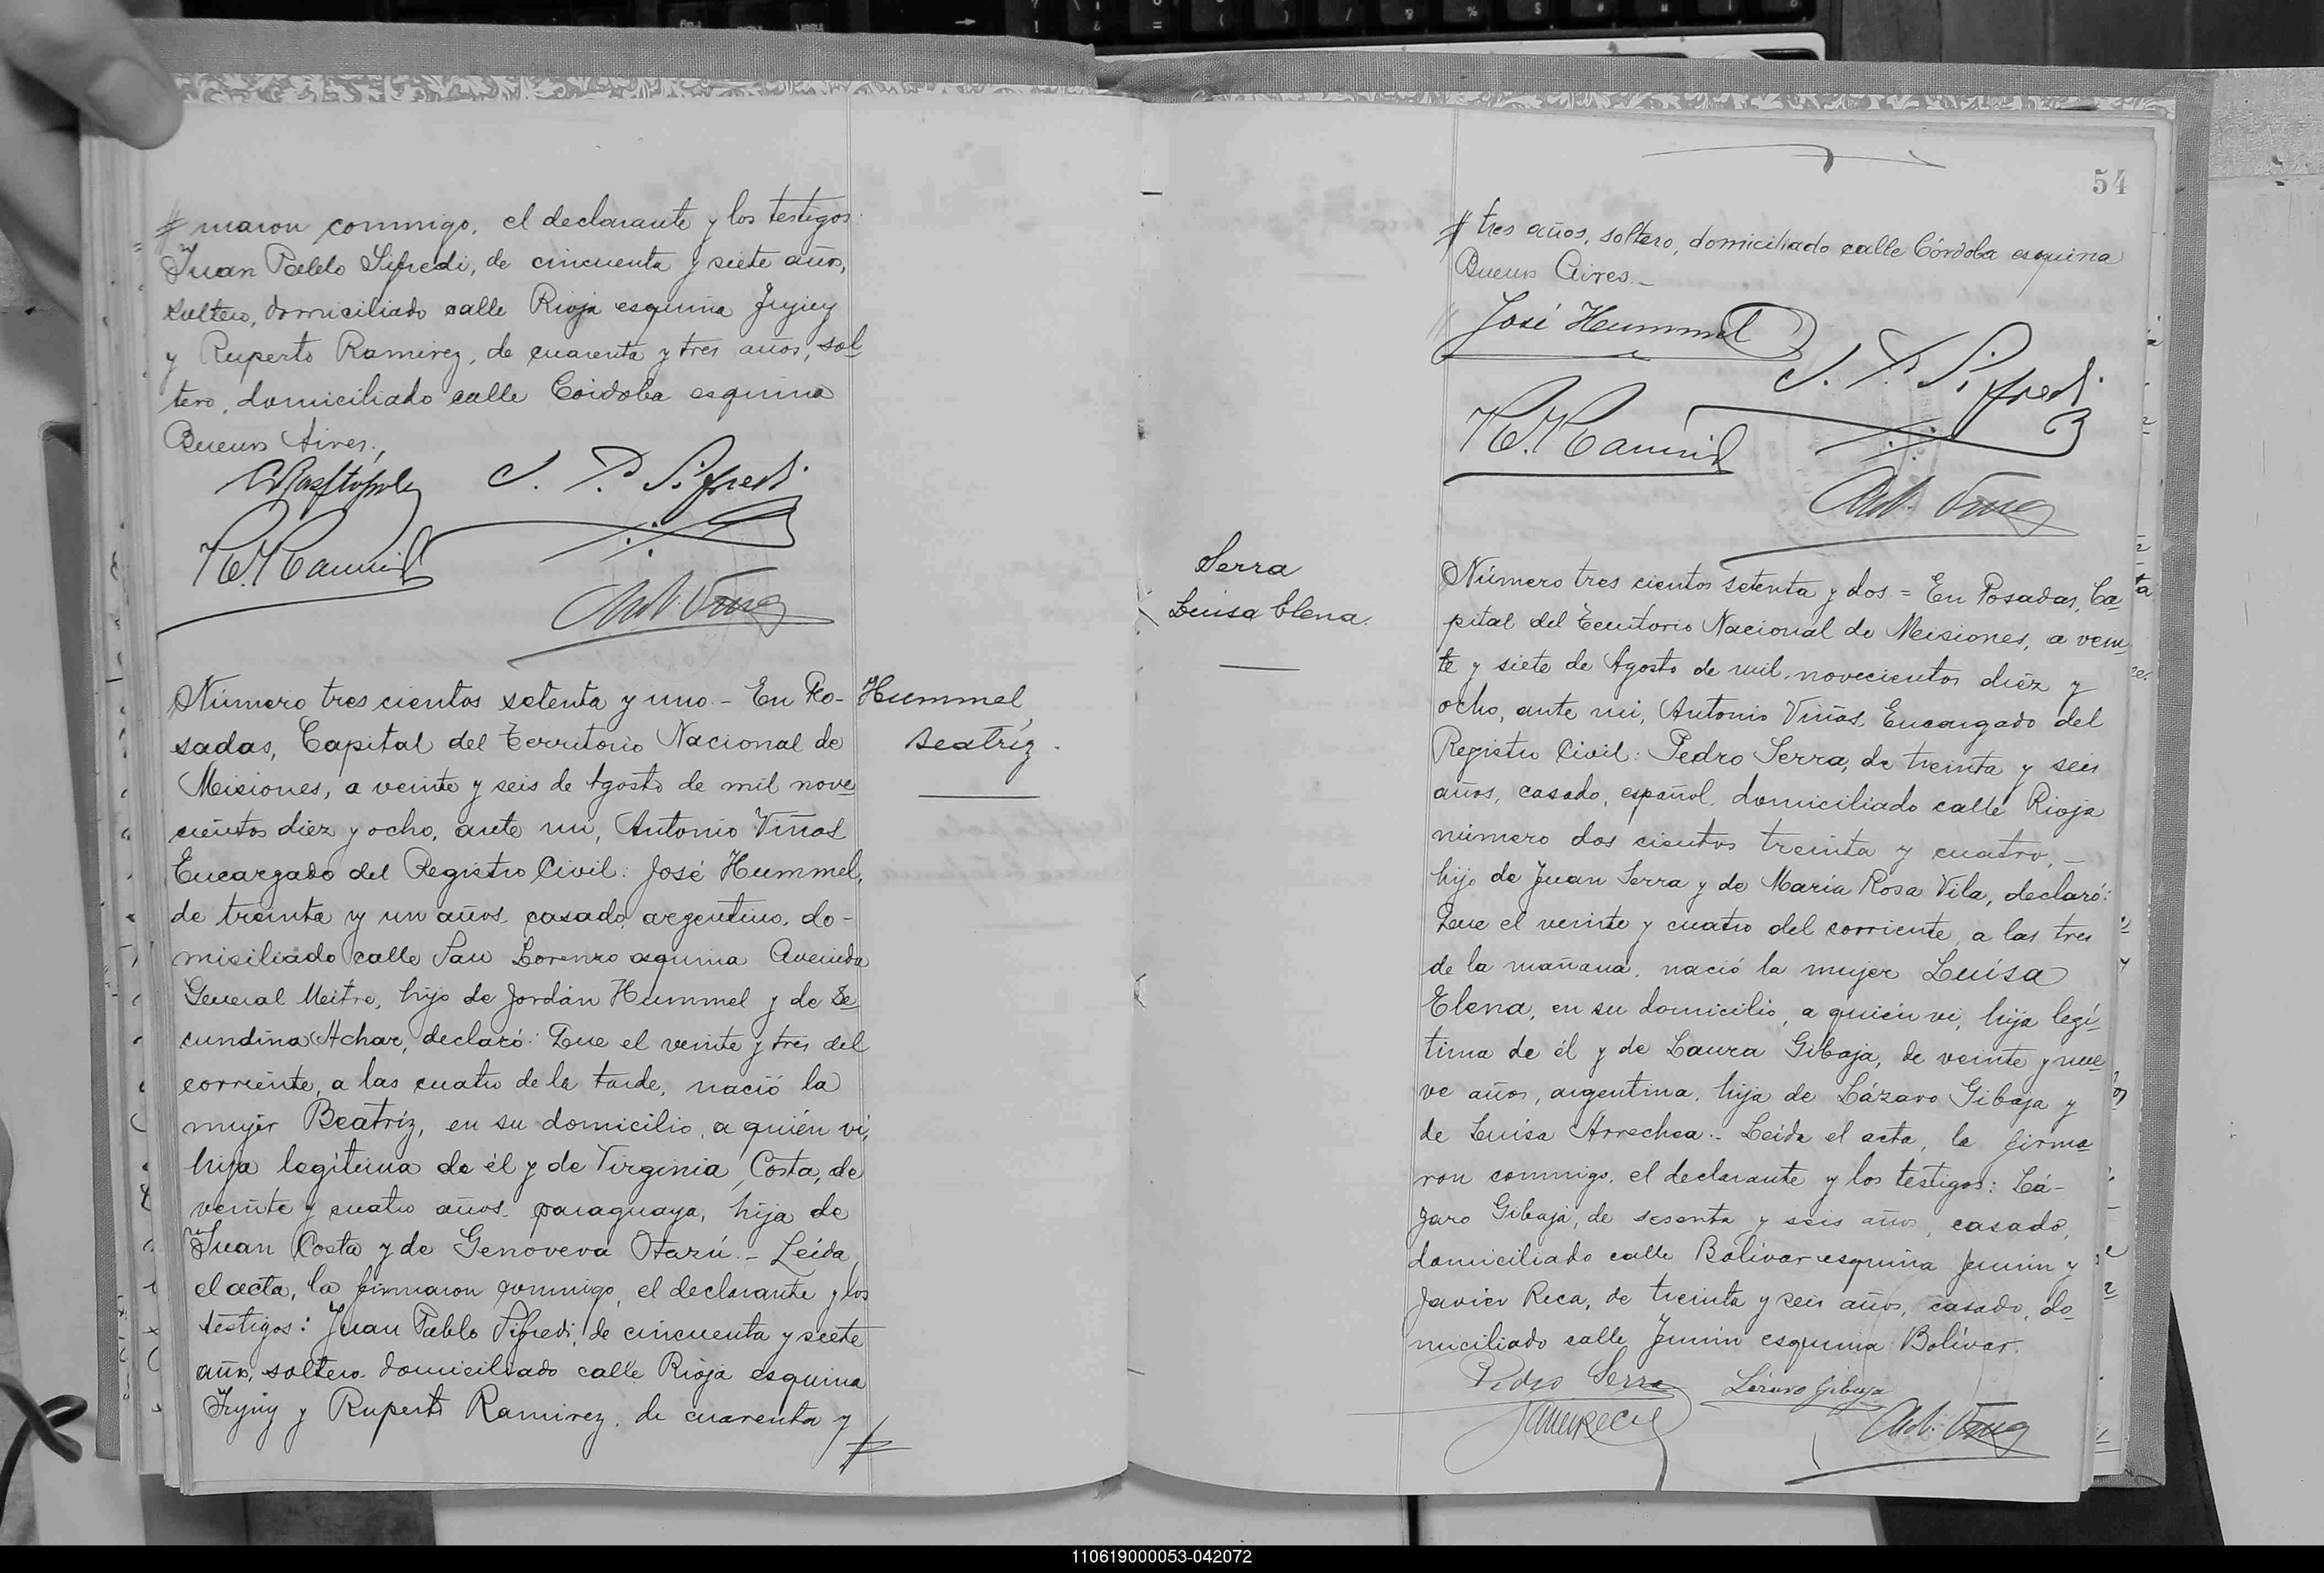 maron conmigo, el declarante y los testigos:
Juan Pablo Sifredi, de cincuenta y siete años,
soltero, domiciliado calle Rioja esquina Jujuy
y Ruperto Ramirez, de cuarenta y tres años, sol
tero, domiciliado calle Córdoba esquina
Buenos Aires.,
J. P. Sifredi
R. Ramirez
Ant. Viñas
Número tres cientos setenta y uno - En Po-
sadas, Capital del Territorio Nacional de
Misiones, a veinte y seis de Agosto de mil nove
cientos diez y ocho, ante mi, Antonio Viñas
Encargado del Registro Civil: José Hummel,
de treinta y un años casado, argentino, do-
misiliado calle San Lorenzo esquina Avenida
General Mitre, hijo de Jordán Hummel y de Se
cundina Achar, declaró: Que el veinte y tres del
corriente, a las cuatro de la tarde, nació la
mujer Beatríz, en su domicilio, a quién vi,
hija legítima de él y de Virginia Costa, de
veinte y cuatro años paraguaya, hija de
Juan Costa y de Genoveva Otazú.- Leída
el acta, la firmaron conmigo, el declarante y los
testigos: Juan Pablo Sifredi, de cincuenta y siete
años, soltero domiciliado calle Rioja esquina
Jujuy y Ruperto Ramirez, de cuarenta y
Hummel
Beatríz.
54
tres años, soltero, domiciliado calle Córdoba esquina
Buenos Aires.-
José Hummel
J. P. Sifredi
R. Ramirez
Ant. Viñas
Serra
Luisa Elena.
Número tres cientos setenta y dos = En Posadas, Ca
pital del Territorio Nacional de Misiones, a vein
te y siete de Agosto de mil novecientos diéz y
ocho, ante mi, Antonio Viñas, Encargado del
Registro Civil: Pedro Serra, de treinta y seis
años, casado, español, domiciliado calle Rioja
número dos cientos treinta y cuatro, -
hijo de Juan Serra y de María Rosa Vila, declaró:
Que el veinte y cuatro del corriente, a las tres
de la mañana, nació la mujer Luisa
Elena, en su domicilio, a quién vi, hija legí-
tima de él y de Laura Gibaja, de veinte y nue
ve años, argentina, hija de Lázaro Gibaja y
de Luisa Arrechea.- Leída el acta, la firma
ron conmigo, el declarante y los testigos: Lá-
zaro Gibaja, de sesenta y seis años, casado,
domiciliado calle Bolívar esquina Junin y
Javier Reca, de treinta y seis años, casado, do
miciliado calle Junin esquina Bolívar.
Pedro Serra
Lázaro Gibaja
Javier Reca
Ant. Viñas
110619000053-042072